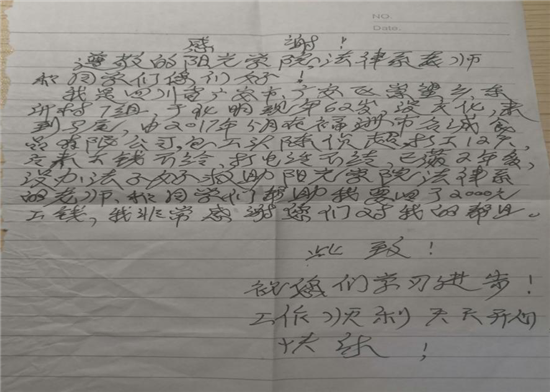 NO.
Date.
感 谢！
尊敬的阳光学院法律系老师
和同学们您们好！
我是四川省广安市,广安区 乡 东
村7组 于 明现年62岁,没文化,来
到了 ,由2017年 月在福州市 诚食
品有限公司,包工头陈 超,打工12天,
后来工钱不给,打电话不给,已满2年多,
没办法了只好求助阳光学院法律系
的老师,和同学们帮助我要回了2000元
工钱,我非常感谢您们对我的帮助。
此致！
祝您们学习进步！
工作顺利 天天开心
快乐！